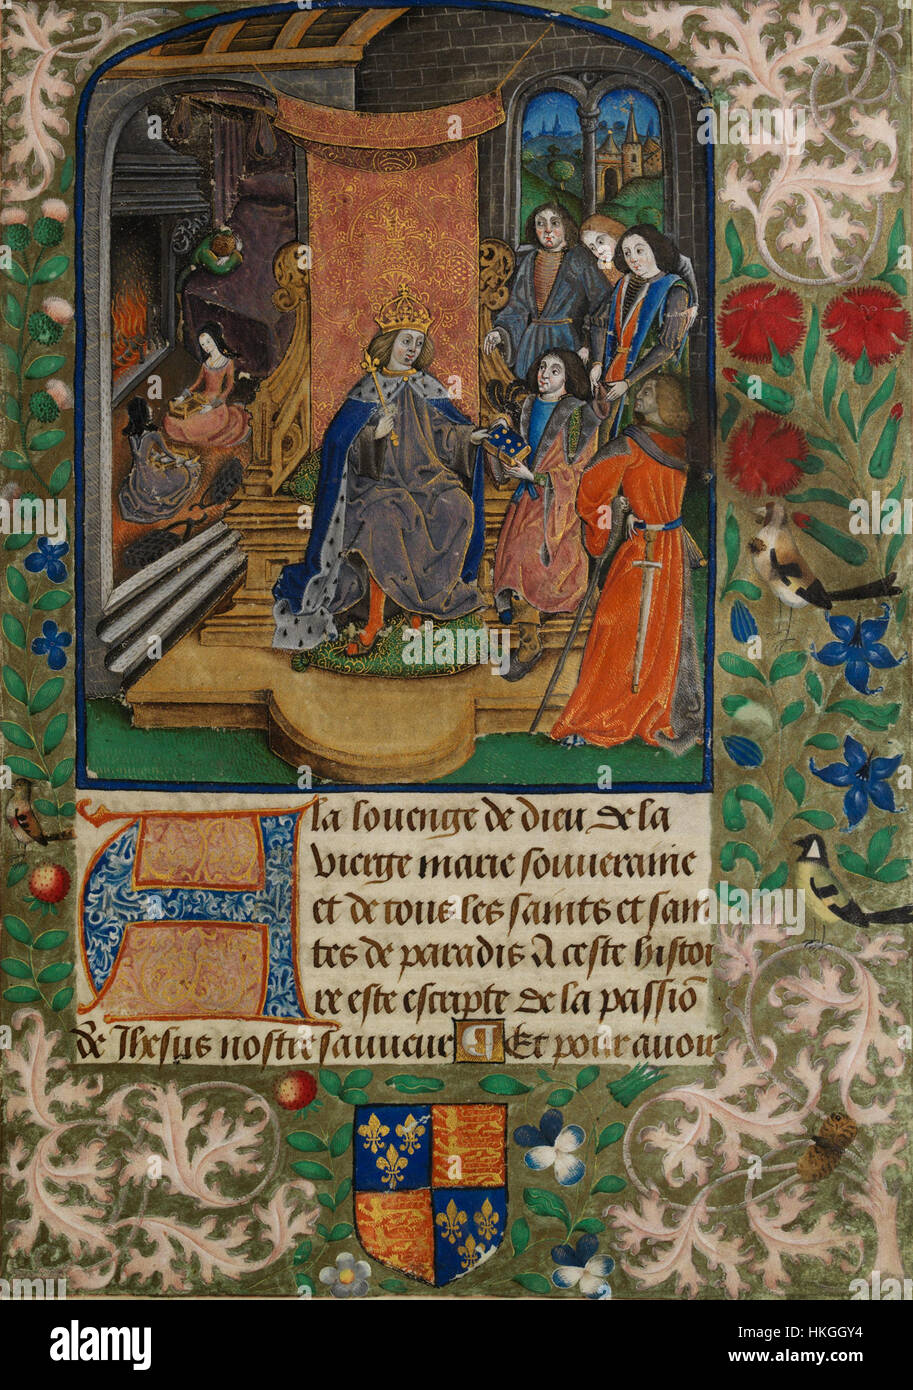 A la louenge de dieu de la
vierge marie souveraine
et de tous les saints et sain
tes de paradis A ceste histoi
re este escripte de la passiō
de Ihesus nostre sauveur Et pour avoir
alamy
Image ID: HKGGY4
www.alamy.com